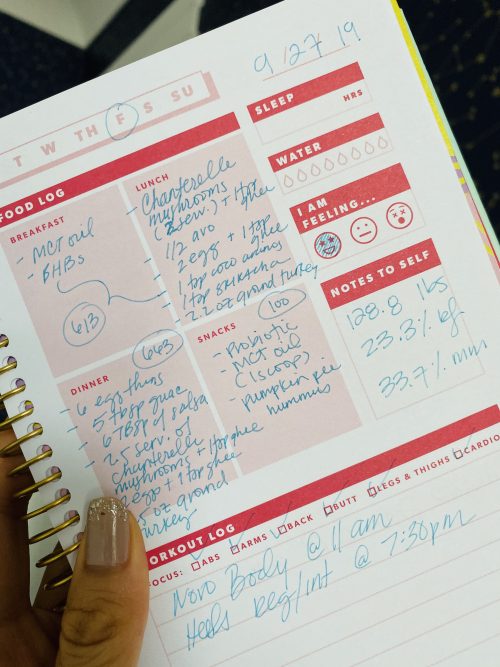 9/27/19
T W TH F S SU
SLEEP
HRS
WATER
I AM
FEELING...
NOTES TO SELF
128.8 lbs
23.3% bf
33.7% mm
FOOD LOG
BREAKFAST
- MCT oil
- BHBs
613
LUNCH
- Chanterelle
mushrooms
(2 serv.) + 1 tsp
ghee
- 1/2 avo
- 2 egg + 1 tsp
ghee
- 1 tsp coco aminos
- 1 tsp sriracha
- 2.2 oz ground turkey
DINNER
663
- 6 egg thins
- 5 tbsp guac
- 6 tbsp of salsa
- 2.5 serv. of
chanterelle
mushrooms + 1 tsp ghee
- 2 egg + 1 tsp ghee
oz ground
turkey
SNACKS
100
- Probiotic
- MCT oil
(1 scoop)
- pumpkin pie
hummus
WORKOUT LOG
FOCUS: ABS ARMS BACK BUTT LEGS & THIGHS CARDIO
Novo Body @ 11 am
Heels beg/int @ 7:30pm